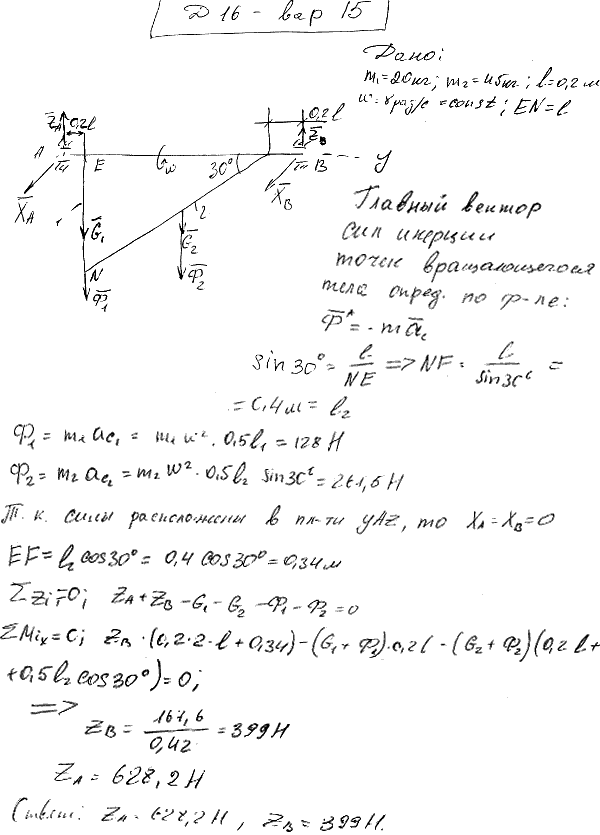 Д 16 - вар 15
Дано:
m₁=20кг; m₂=45кг; l=0,2м
w= рад/с =const; EN=l
Z̄_A 0,2l
0,2l
Z̄_B
A E w 30° B y
X̄_A
X̄_B
1 Ḡ₁
2
Ḡ₂
N Ф̄₂
Ф̄₁
Главный вектор
сил инерции
точек вращающегося
тела опред. по ф-ле:
Ф̄ = - m ā_c
sin 30° = l/NE => NF = l/sin30° =
= 0,4м = l₂
Ф₁ = m₁ a_c₁ = m₁ w² · 0,5l₁ = 128 Н
Ф₂ = m₂ a_c₂ = m₂ w² · 0,5l₂ sin30° = Н
Т.к. силы расположены в пл-ти yAz, то X_A = X_B = 0
EF = l₂ cos30° = 0,4 cos30° = 0,34 м
ΣZi=0; Z_A + Z_B - G₁ - G₂ - Ф₁ - Ф₂ = 0
ΣMix = 0; Z_B · (0,2·2·l + 0,34) - (G₁ + Ф₁)·0,2l - (G₂ + Ф₂)(0,2l +
+0,5l₂ cos30°) = 0;
=>
Z_B = 167,6/0,42 = 399 Н
Z_A = 627,2 Н
Ответ: Z_A = 627,2 Н, Z_B = 399 Н.